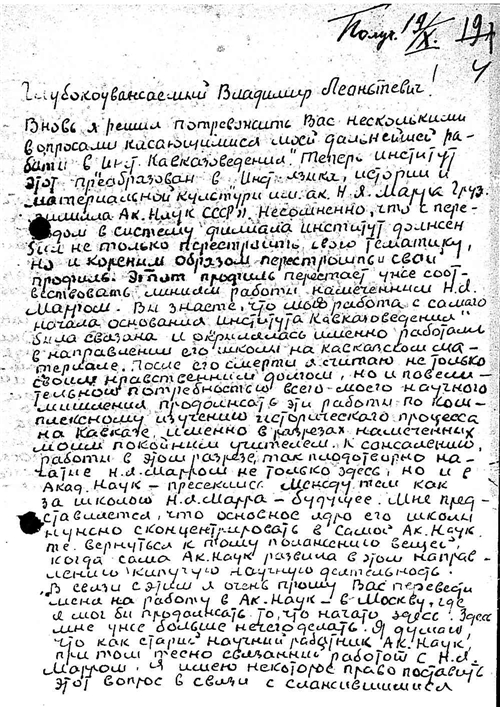 Получ. 19/X. 197
4
Глубокоуважаемый Владимир Леонтьевич!
Вновь я решил потревожить Вас несколькими
вопросами касающимися моей дальнейшей ра-
боти в Инст. Кавказоведения. Теперь институт
этот преобразован в "Инст. язика, истории и
материальной культури им. ак. Н.Я. Марра Груз.
филиала Ак. Наук СССР". Несомненно, что с пере-
ходом в систему филиала институт должен
бил не только перестроить свою тематику,
но и кореним образом перестроить и свой
профиль. Этот профиль перестает уже соот-
ветствовать линиям работи намеченним Н.Я.
Марром. Ви знаете, что моя работа с самаго
начала основания института Кавказоведения
била связана и окрилялась именно работами
в направлении его школи на кавказском ма-
териале. После его смерти я считаю не только
своим нравственним долгом, но и повели-
тельной потребностью всего моего научного
мишления продолжать эти работи по ком-
плексному изучению историческаго процесса
на Кавказе, именно в разрезах намеченных
моим покойним учителем. К сожалению,
работи в этом разрезе так плодотворно на-
чатие Н.Я. Марром не только здесь, но и в
Акад. Наук – пресеклись. Между тем как
за школою Н.Я. Марра – будущее. Мне пред-
ставляется, что основное ядро его школи
нужно сконцентрировать в самой Ак. Наук
т.е. вернуться к тому положению вещей,
когда сама Ак. Наук развила в этом направ-
лении кипучую научную деятельность.
В связи с этим я очень прошу Вас перевести
меня на работу в Ак. Наук – в Москву, где
я мог би продолжать то, что начато здесь. Здесь
мне уже больше нечего делать. Я думаю,
что как старий научний работник Ак. Наук,
при том тесно связанний работой с Н.Я.
Марром, я имею некоторое право поставить
этот вопрос в связи с сложившимися